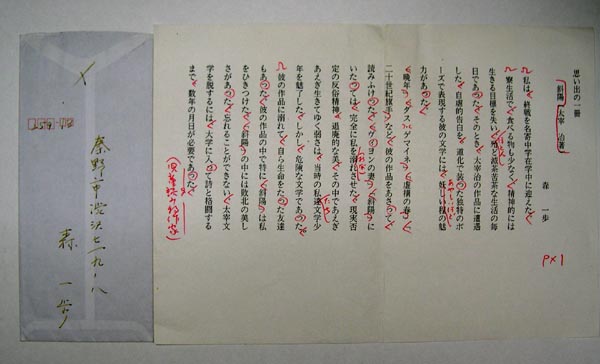 思い出の一冊
「斜陽」太宰 治著
森 一歩
P×1
私は、終戦を名寄中学在学中に迎えた。
寮生活で、食べる物も少なく、精神的には
生きる目標を失い、滅茶苦茶な生活の毎
日であった。そのとき、太宰治の作品に遭遇
した。自虐的告白を、道化で装った独特のポ
ーズで表現する彼の文学には、妖しい程の魅
力があった。
「晩年」「ダス・ゲマイネ」「虚構の春」「
二十世紀旗手」など、彼の作品をあさって、
読みふけった。「ヴィヨンの妻」「斜陽」に
いたっては、完全に私を溺れさせた。現実否
定の反俗精神。退廃的な美。その中であえぎ
あえぎ生きてゆく弱さは、当時の私達文学少
年を魅了した。しかし、危険な文学であった。
彼の作品に溺れて、自ら生命をたった友達
もあった。彼の作品の中で特に「斜陽」は私
をひきつけた。「斜陽」の中には敗北の美し
さがあった。忘れることができない。太宰文
学を脱するには、大学に入って詩と格闘する
まで、数年の月日が必要であった。
(児童読み物作家)
秦野市渋沢七一九ノ八
森 一歩